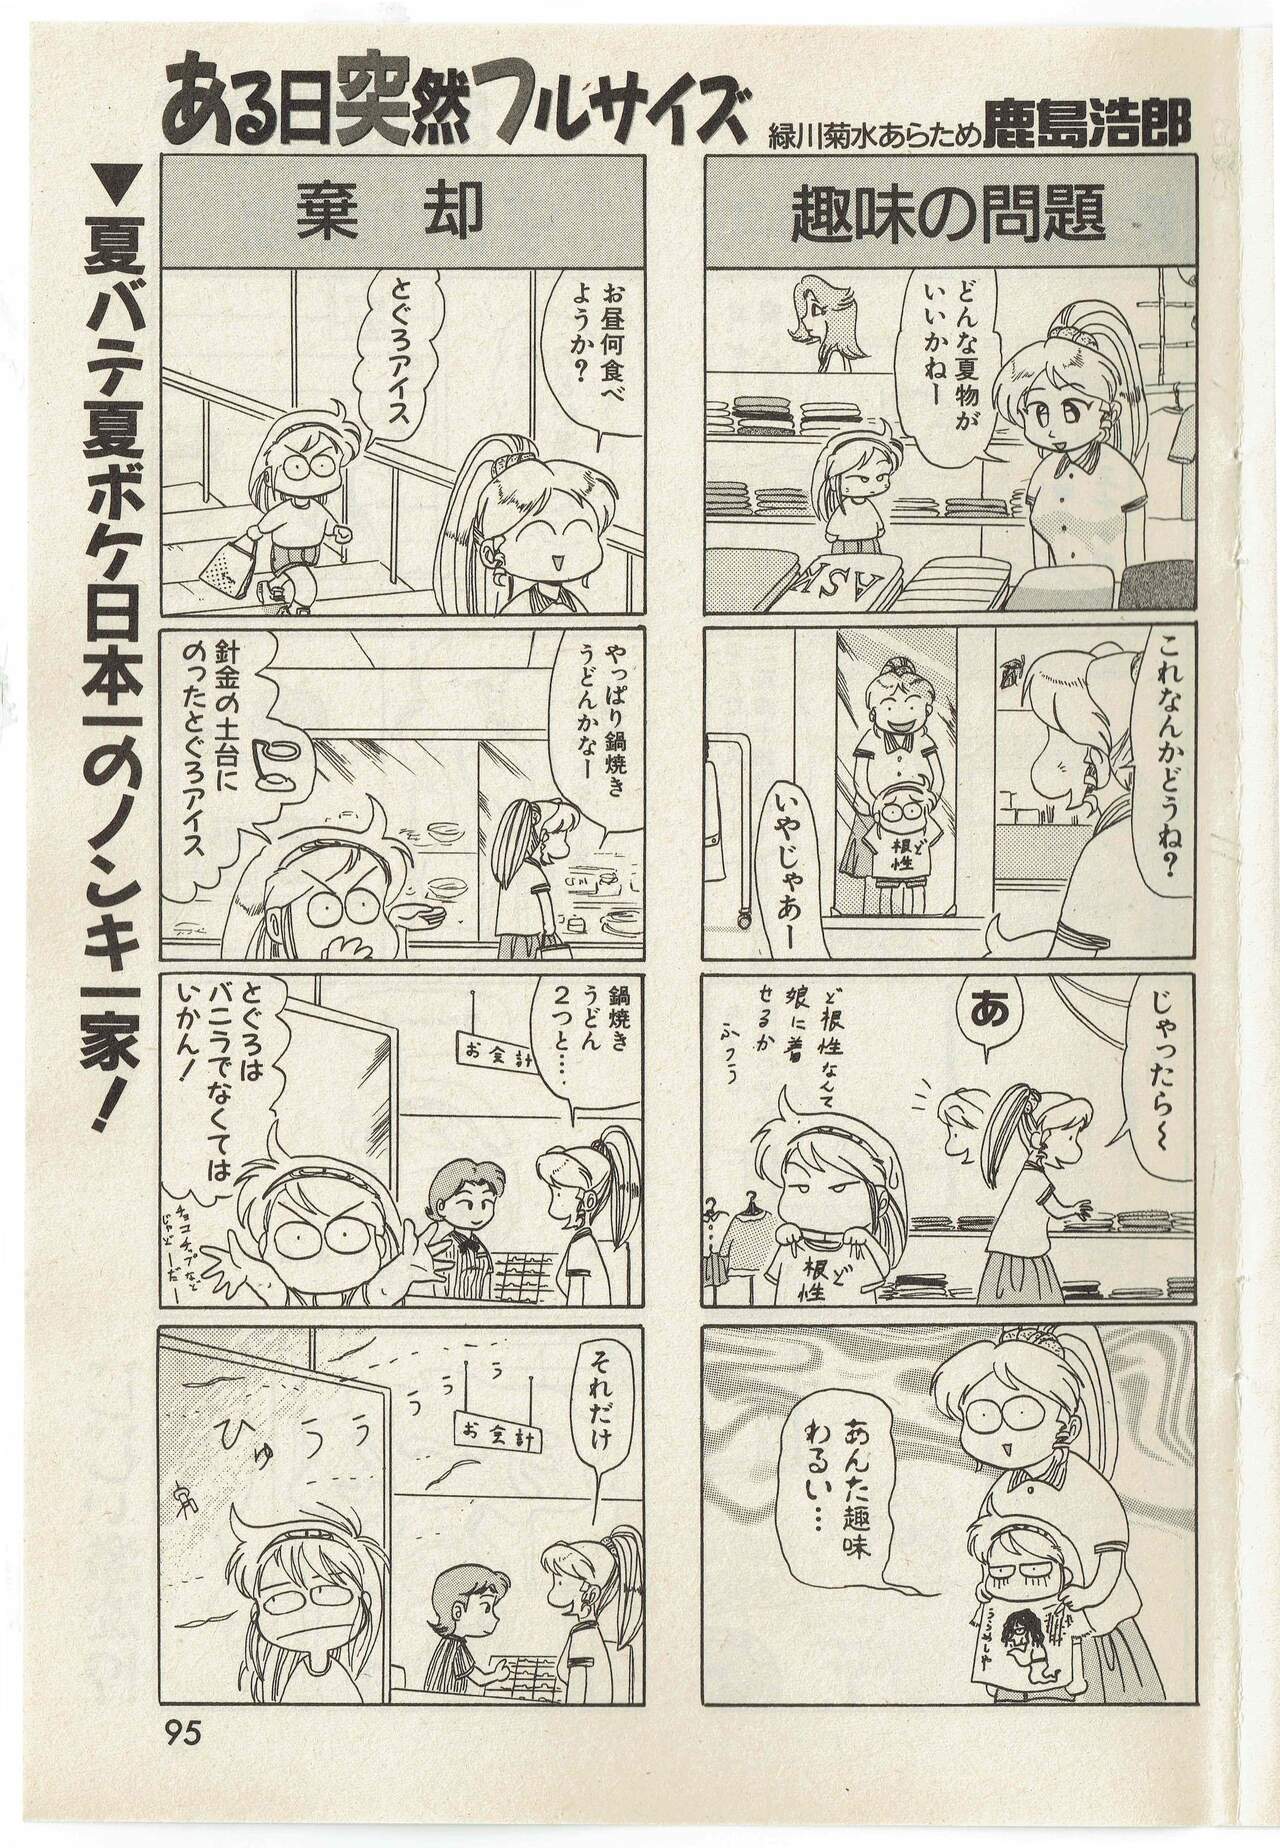 ある日突然フルサイズ
緑川菊水あらため鹿島浩郎
▼夏バテ夏ボケ日本一のノンキ一家!
趣味の問題
どんな夏物が
いいかねー
ASK
これなんかどうね?
ど
根性
いやじゃあー
じゃったら〜
あ
ど根性なんて
娘に着
せるか
ふつう
ど
根性
あんた趣味
わるい…
うらめしや
棄却
お昼何食べ
ようか?
とぐろアイス
やっぱり鍋焼き
うどんかなー
針金の土台に
のったとぐろアイス
鍋焼き
うどん
2つと…
お会計
とぐろは
バニラでなくては
いかん!
チョコチップなど
じゃどーだー
それだけ
お会計
ひゅううううう
95